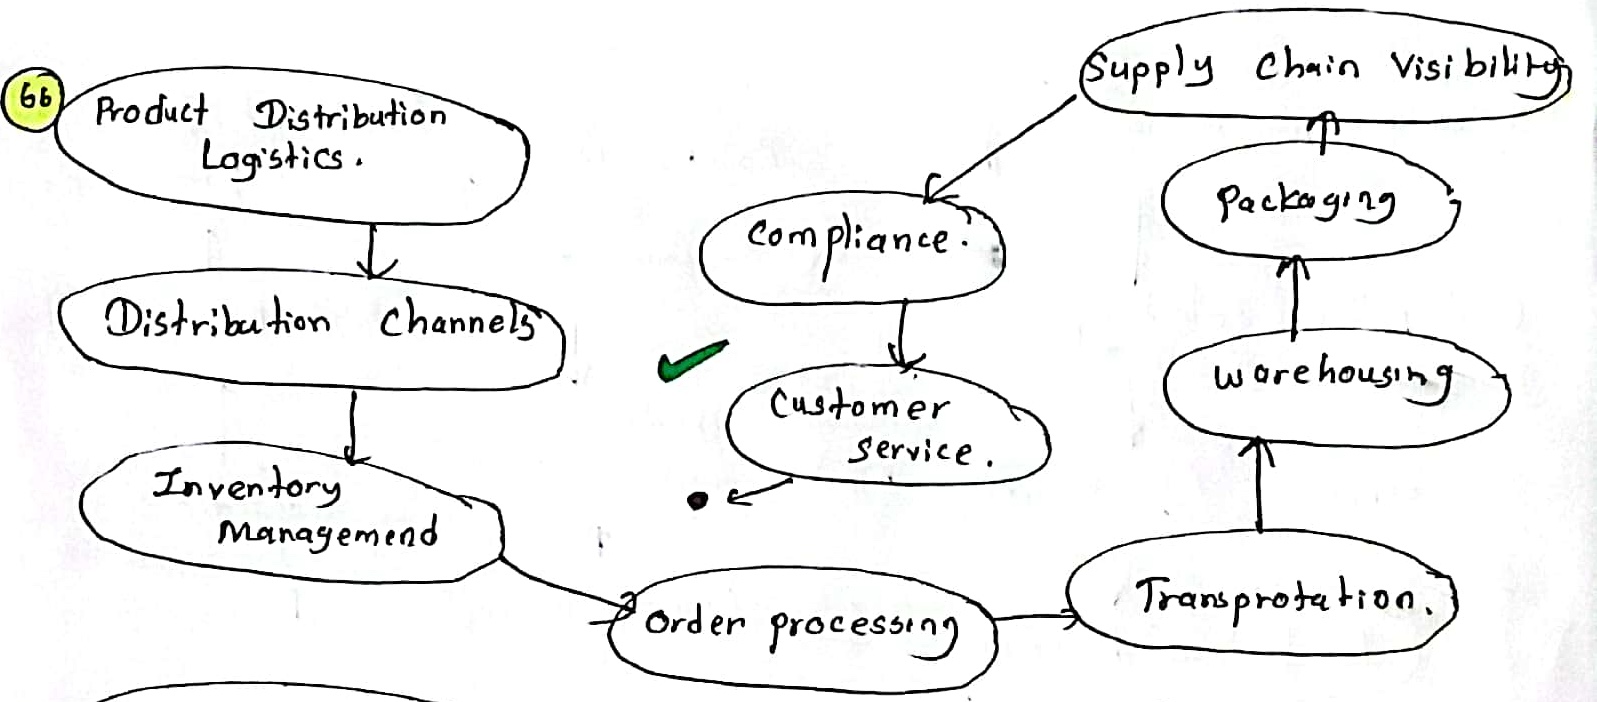 66
Product Distribution
Logistics.
Distribution Channels
Inventory
Managemend
Order processing
Transprotation.
warehousing
Packaging
Supply Chain Visibility
Compliance.
Customer
service.